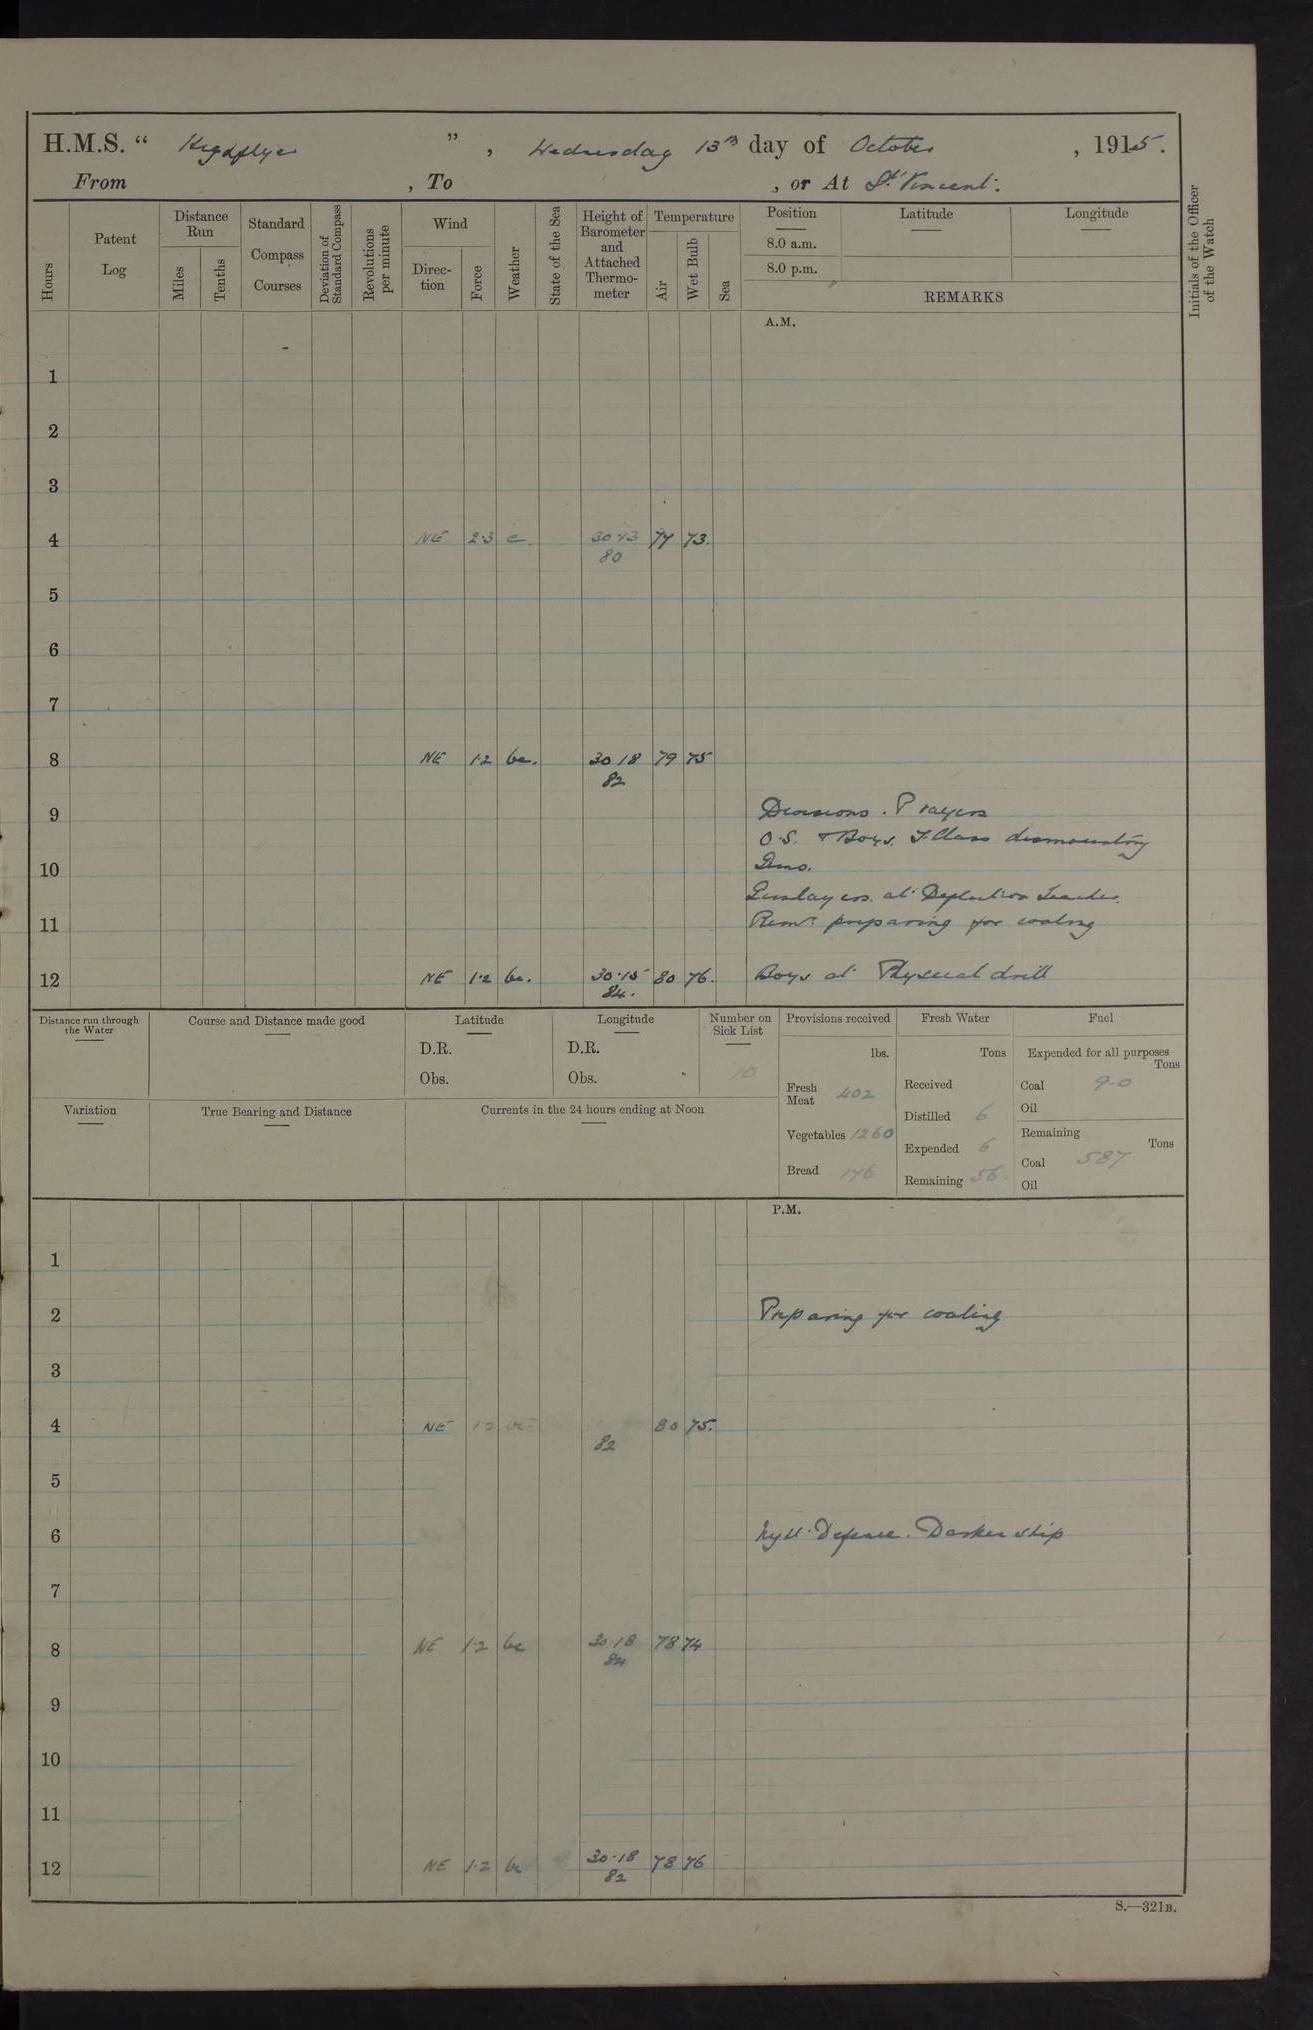 H.M.S. “ Highflyer ” , Wednesday 13th day of October , 1915.
From , To , or At St Vincent.
Hours
Patent Log
Distance Run
Miles
Tenths
Standard Compass Courses
Deviation of Standard Compass
Revolutions per minute
Wind
Direc-tion
Force
Weather
State of the Sea
Height of Barometer and Attached Thermo-meter
Temperature
Air
Wet Bulb
Sea
Position
8.0 a.m.
8.0 p.m.
Latitude
Longitude
REMARKS
Initials of the Officer of the Watch
A.M.
1
2
3
4 NE 2·3 c. 30·13 77 73.
80
5
6
7
8 NE 1·2 bc. 30·18 79 75
82
9 Divisions. Prayers
O.S. & Boys. I. Class dismounting
10 Guns.
Gunlayers at Deflection Teacher.
11 Remr preparing for coaling
12 NE 1·2 bc. 30·15 80 76. Boys at Physical drill
84.
Distance run through the Water
Course and Distance made good
Latitude
D.R.
Obs.
Longitude
D.R.
Obs.
Number on Sick List
10
Variation
True Bearing and Distance
Currents in the 24 hours ending at Noon
Provisions received
lbs.
Fresh Meat 402
Vegetables 1260
Bread 176
Fresh Water
Tons
Received
Distilled 6
Expended 6
Remaining 56
Fuel
Expended for all purposes
Tons
Coal 9·0
Oil
Remaining
Tons
Coal 587
Oil
P.M.
1
2 Preparing for coaling
3
4 NE 1·2 bc 80 75.
82
5
6 Night Defence. Darken ship
7
8 NE 1·2 bc 30·18 78 74
84
9
10
11
12 NE 1·2 bc 30·18 78 76
82
S.—321B.